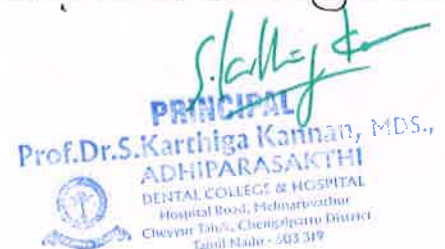 S. Karthiga K
PRINCIPAL
Prof.Dr.S.Karthiga Kannan, MDS.,
ADHIPARASAKTHI
DENTAL COLLEGE & HOSPITAL
Hospital Road, Melmaruvathur
Cheyyur Taluk, Chengalpattu District
Tamil Nadu - 603 319